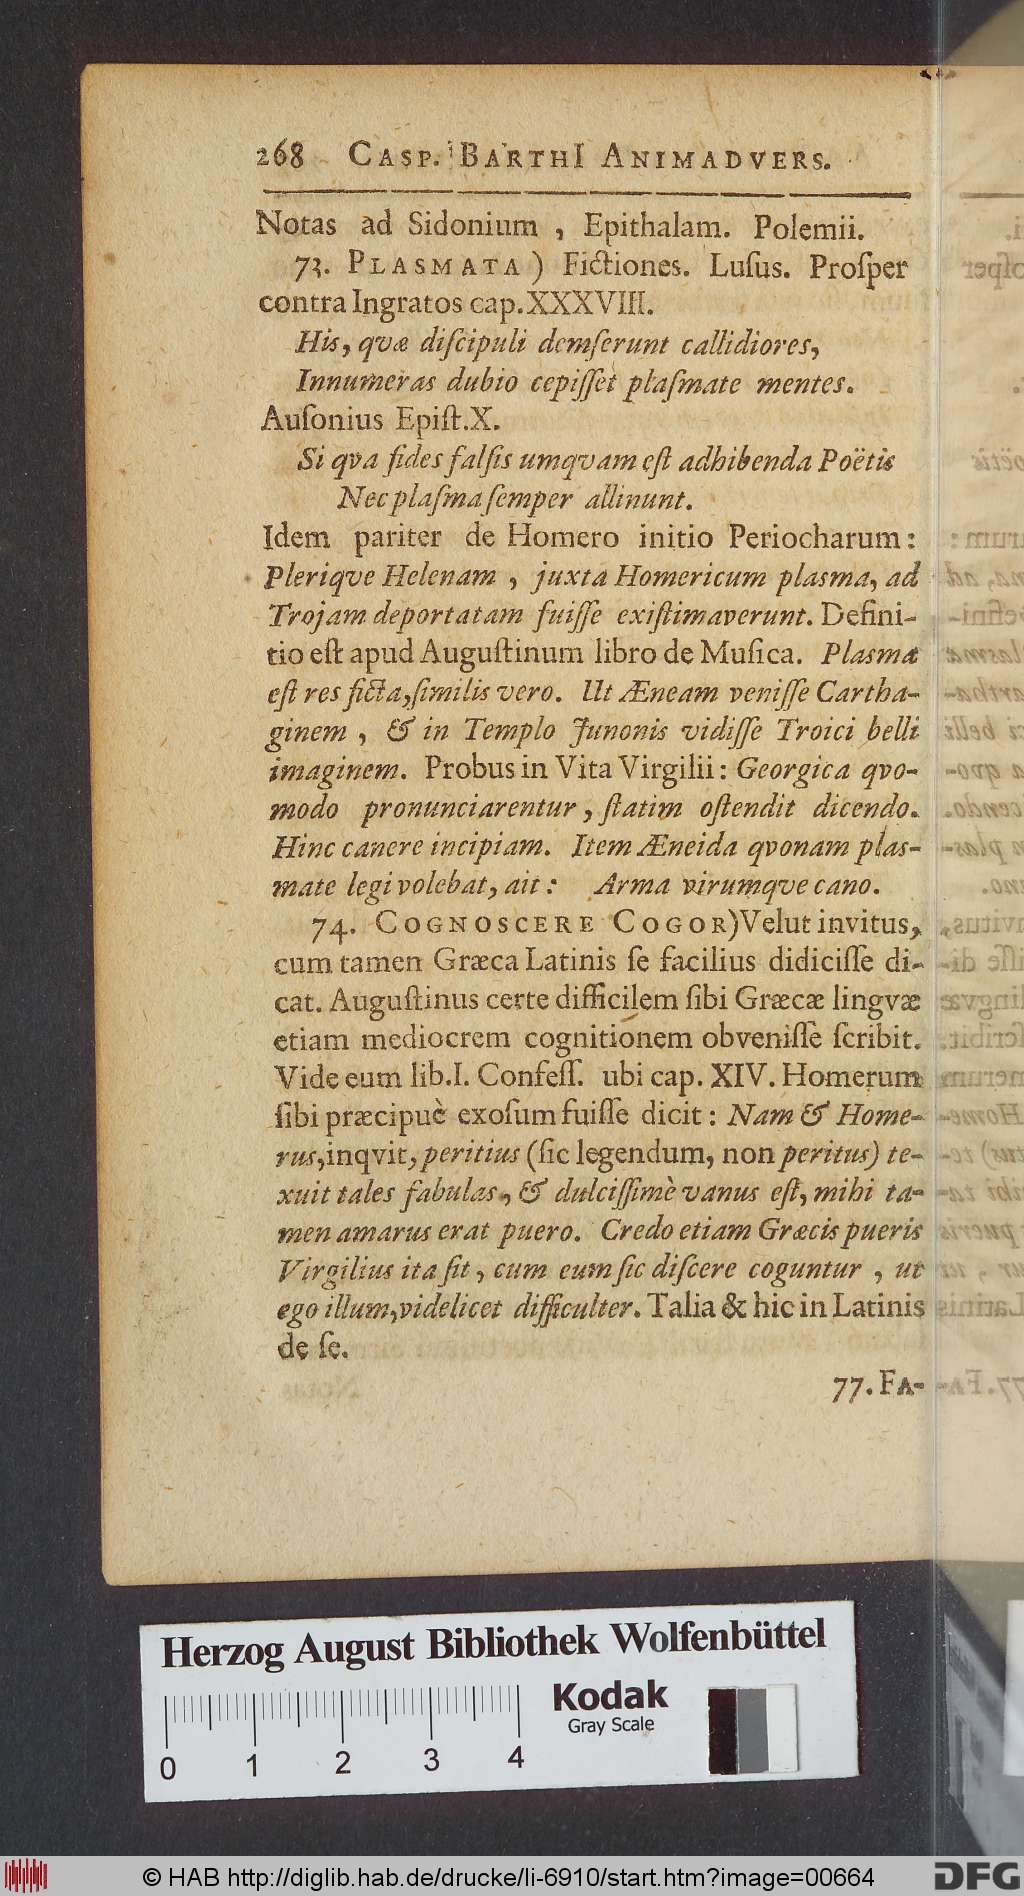 268 CASP. BARTHI ANIMADVERS.
Notas ad Sidonium, Epithalam. Polemii.
73. PLASMATA) Fictiones. Luſus. Proſper
contra Ingratos cap. XXXVIII.
His, qvæ diſcipuli demſerunt callidiores,
Innumeras dubio cepiſſet plaſmate mentes.
Auſonius Epiſt. X.
Si qva fides falſis umqvam eſt adhibenda Poëtis
Nec plaſma ſemper allinunt.
Idem pariter de Homero initio Periocharum:
Pleriqve Helenam, juxta Homericum plasma, ad
Trojam deportatam fuiſſe exiſtimaverunt. Defini-
tio eſt apud Auguſtinum libro de Muſica. Plasma
eſt res ficta, ſimilis vero. Ut Æneam veniſſe Cartha-
ginem, & in Templo Junonis vidiſſe Troici belli
imaginem. Probus in Vita Virgilii: Georgica qvo-
modo pronunciarentur, ſtatim oſtendit dicendo.
Hinc canere incipiam. Item Æneida qvonam plas-
mate legi volebat, ait: Arma virumqve cano.
74. COGNOSCERE COGOR) Velut invitus,
cum tamen Græca Latinis ſe facilius didiciſſe di-
cat. Auguſtinus certe difficilem ſibi Græcæ lingvæ
etiam mediocrem cognitionem obveniſſe ſcribit.
Vide eum lib. I. Confeſſ. ubi cap. XIV. Homerum
ſibi præcipuè exoſum fuiſſe dicit: Nam & Home-
rus, inqvit, peritius (ſic legendum, non peritus) te-
xuit tales fabulas, & dulciſſimè vanus eſt, mihi ta-
men amarus erat puero. Credo etiam Græcis pueris
Virgilius ita ſit, cum eum ſic diſcere coguntur, ut
ego illum, videlicet difficulter. Talia & hic in Latinis
de ſe.
77. FA-
Herzog August Bibliothek Wolfenbüttel
Kodak
Gray Scale
0 1 2 3 4
© HAB http://diglib.hab.de/drucke/li-6910/start.htm?image=00664
DFG